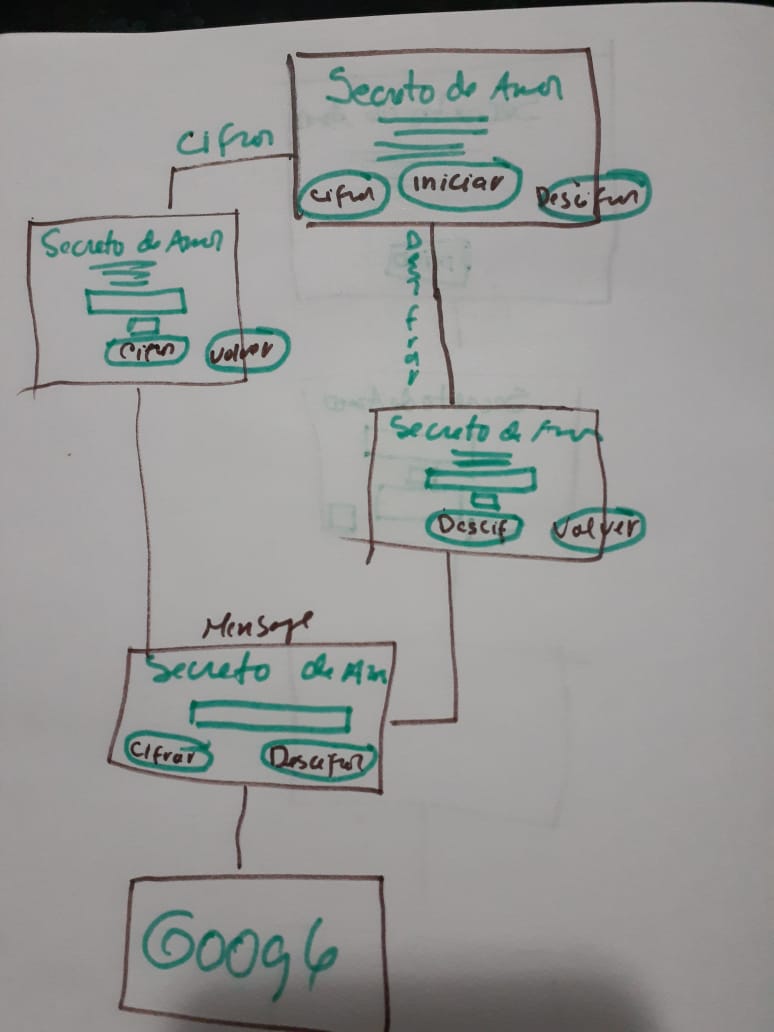 Secreto de Amor
Cifrar
Cifrar
Iniciar
Descifrar
Secreto de Amor
Cifrar
Volver
Secreto de Amor
Descif
Volver
Mensaje
Secreto de Am
Cifrar
Descifrar
Google